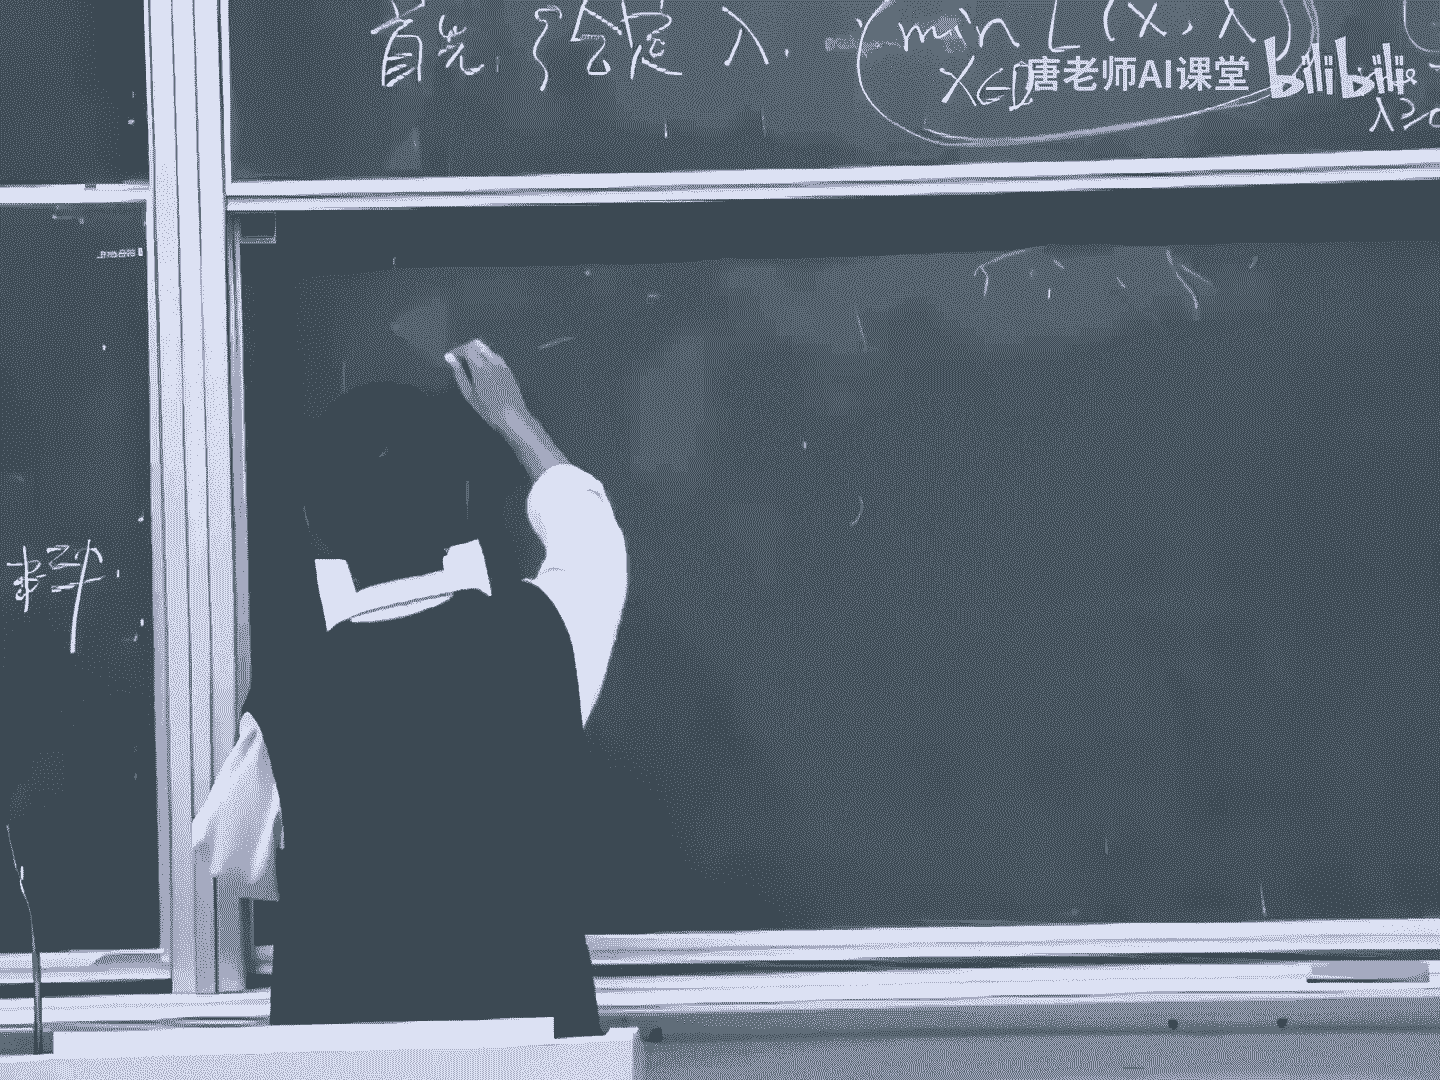 首先给定 λ. min L(x, λ)
x∈D
唐老师AI课堂 bilibili
λ≥0